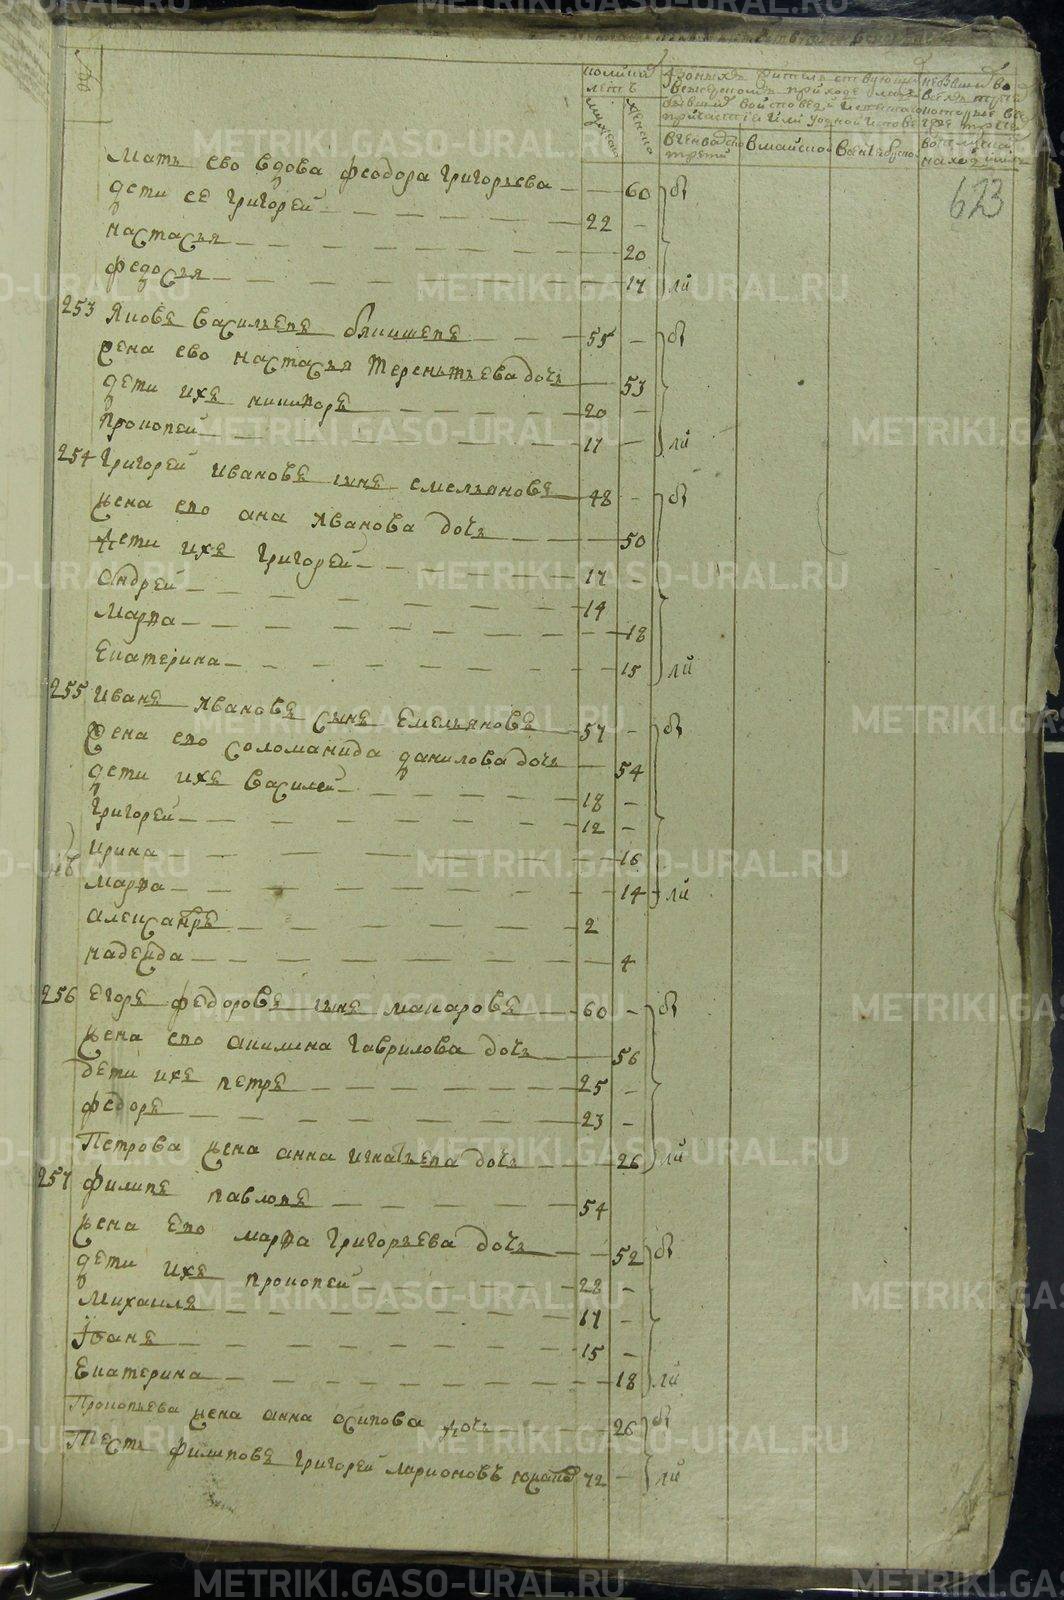 623
Мать ево вдова Феодора Григорьева 60 бы
дети ее Григорей 22
Настасья 20
Федосья 17 ли
253 Яковъ Васильевъ 55 бы
жена ево Настасья Терентьева дочь 53
дети ихъ Никифоръ 20
Прокопей 17 ли
254 Григорей Ивановъ сынъ Емельяновъ 48 бы
жена ево Ана Иванова дочь 50
дети ихъ Григорей 17
Андрей 14
Марфа 18
Екатерина 15 ли
255 Иванъ Ивановъ сынъ Емельяновъ 57 бы
жена ево Соломанида Данилова дочь 54
дети ихъ Василей 18
Григорей 12
Ирина 16
Марфа 14 ли
Александръ 2
Надежда 4
256 Егоръ Федоровъ сынъ Макаровъ 60 бы
жена ево Акилина Гаврилова дочь 56
дети ихъ Петръ 25
Федоръ 23
Петрова жена Анна Игнатьева дочь 26 ли
257 Филипъ Павловъ 54
жена ево Марфа Григорьева дочь 52 бы
дети ихъ Прокопей 22
Михаилъ 17
Иванъ 15
Екатерина 18 ли
Прокопьева жена Анна Осипова дочь 26 бы
Тесть Филиповъ Григорей Ларионовъ 72 ли
METRIKI.GASO-URAL.RU